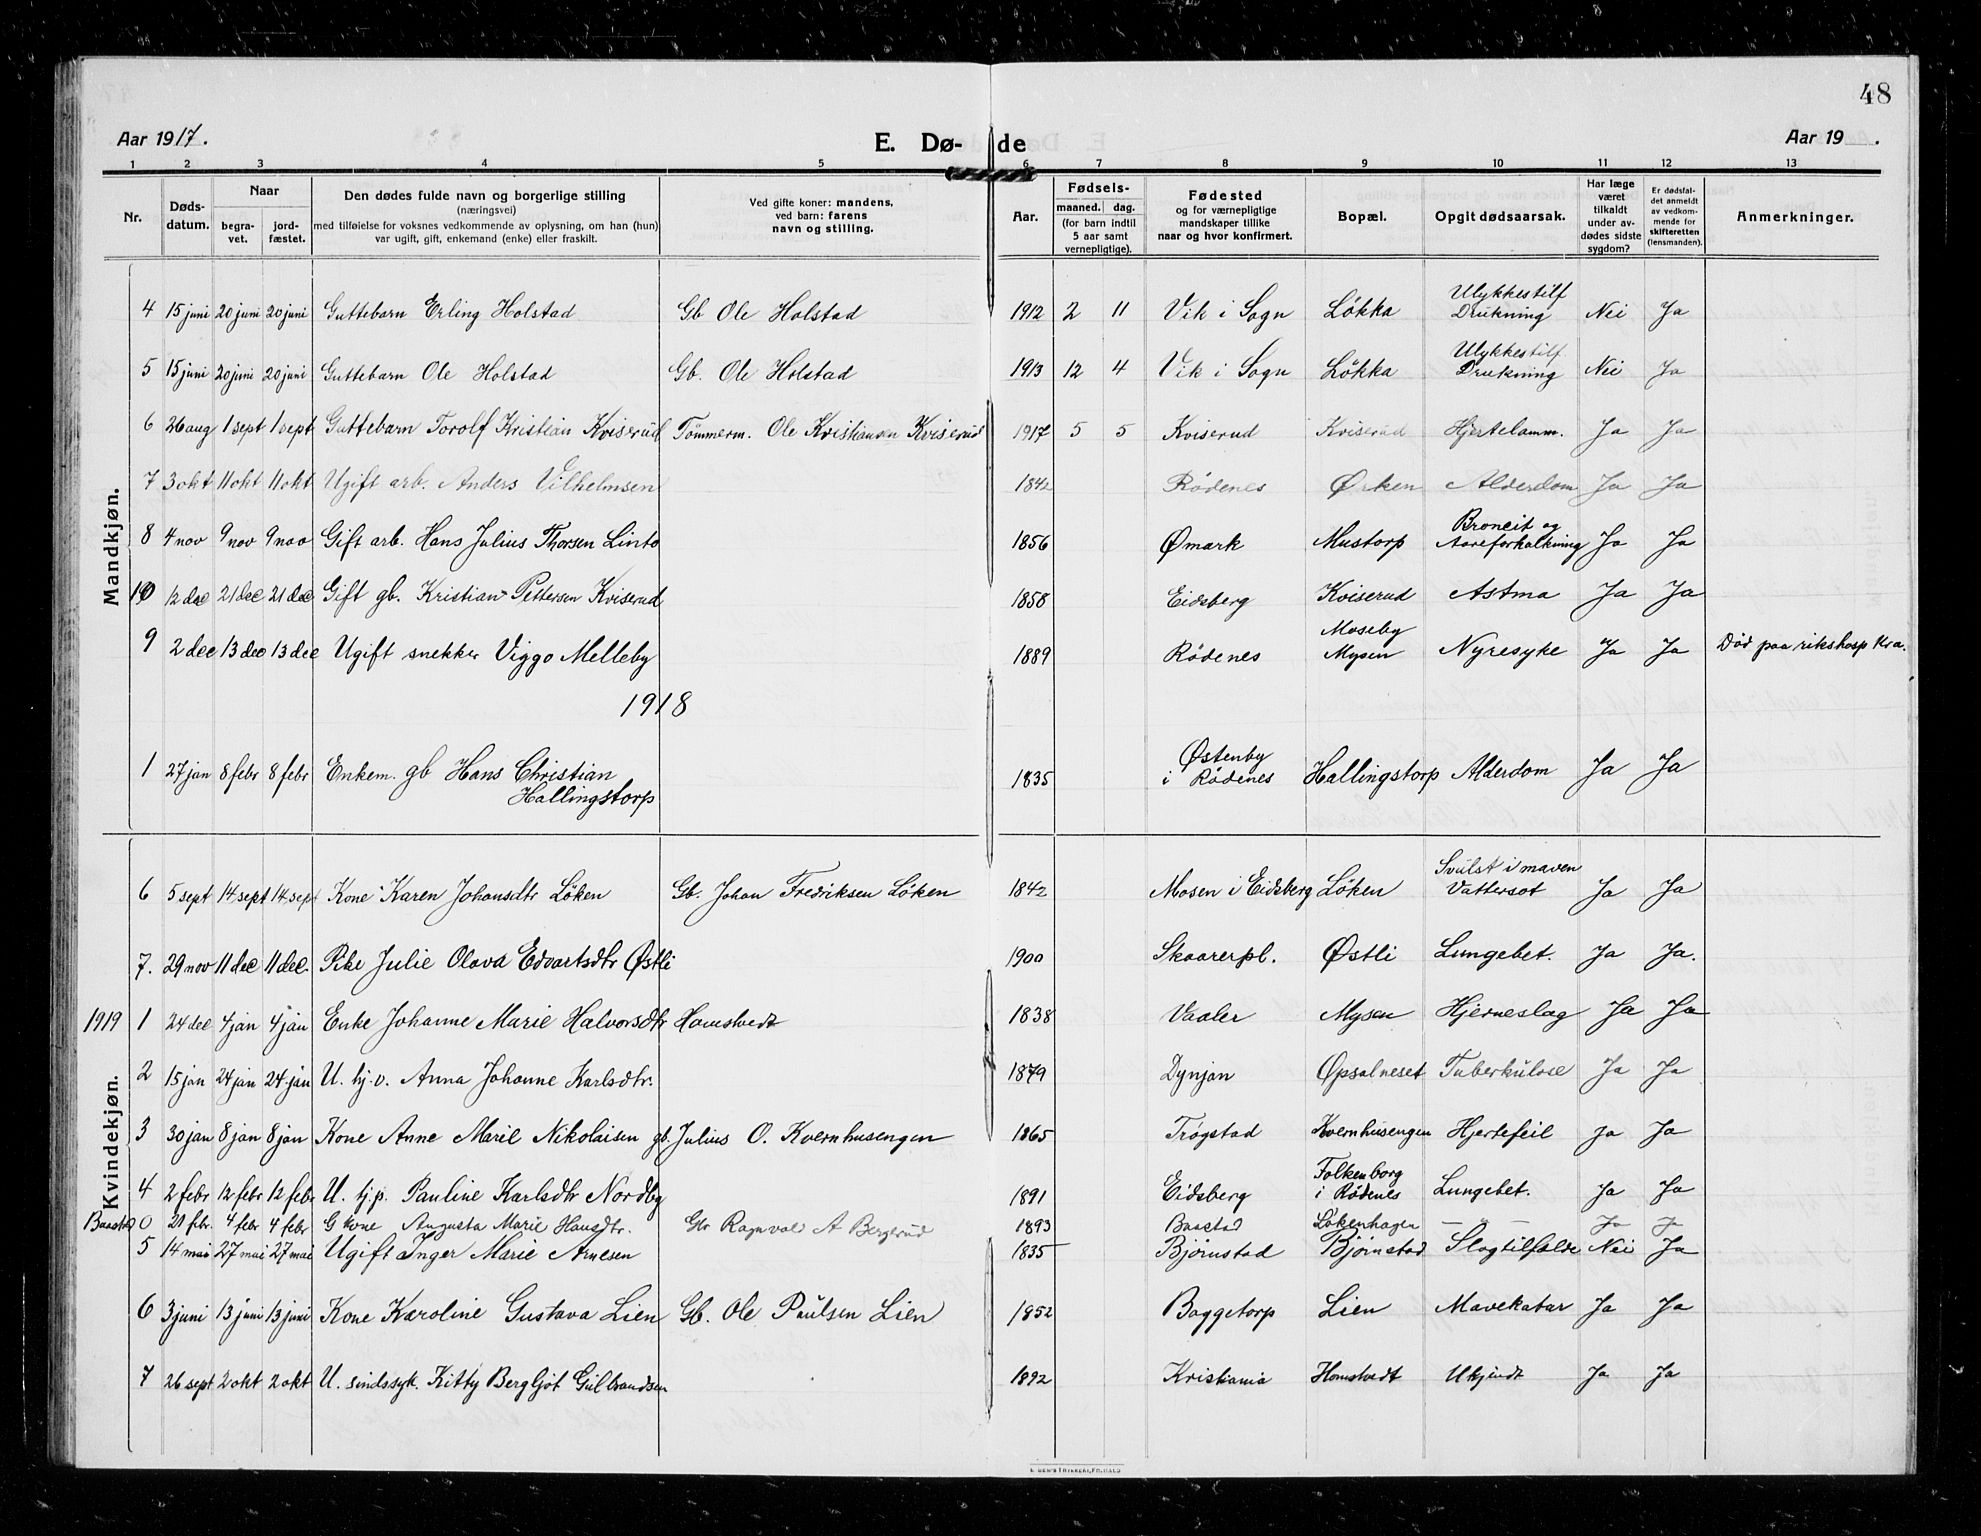 48
Aar 1917.
E. Dø-de
Aar 19 .
1 2 3 4 5 6 7 8 9 10 11 12 13
Nr.
Døds-datum.
Naar
begra-vet.
jord-fæstet.
Den dødes fulde navn og borgerlige stilling
(næringsvei)
med tilføielse for voksnes vedkommende av oplysning, om han (hun)
var ugift, gift, enkemand (enke) eller fraskilt.
Ved gifte koner: mandens,
ved barn: farens
navn og stilling.
Aar.
Fødsels-
maaned. dag.
(for barn indtil
5 aar samt
vernepligtige).
Fødested
og for værnepligtige
mandskaper tillike
naar og hvor konfirmert.
Bopæl.
Opgit dødsaarsak.
Har læge
været
tilkaldt
under av-
dødes sidste
sygdom?
Er dødsfal-
det anmeldt
av vedkom-
mende for
skifteretten
(lensmanden).
Anmerkninger.
Mandkjøn.
4 15 juni 20 juni 20 juni Guttebarn Erling Holstad Gb Ole Holstad 1912 2 11 Vik i Sogn Løkka Ulykkestilf Drukning Nei Ja
5 15 juni 20 juni 20 juni Guttebarn Ole Holstad Gb. Ole Holstad 1913 12 4 Vik i Sogn Løkka Ulykkestilf. Drukning Nei Ja
6 26 aug 1 sept 1 sept Guttebarn Torolf Kristian Kviserud Tømmerm. Ole Kristiansen Kviserud 1917 5 5 Kviserud Kviserud Hjertelamm. Ja Ja
7 3 okt 11 okt 11 okt Ugift arb. Anders Vilhelmsen 1842 Rødenes Ørken Alderdom Ja Ja
8 4 nov 9 nov 9 nov Gift arb. Hans Julius Thorsen Linto 1856 Ømark Mustorp Broncit og Aareforkalkning Ja Ja
10 12 dec 21 dec 21 dec Gift gb. Kristian Pettersen Kviserud 1858 Eidsberg Kviserud Astma Ja Ja
9 2 dec 13 dec 13 dec Ugift snekker Viggo Melleby 1889 Rødenes Moseby Mysen Nyresyke Ja Ja Död paa rikshosp Kra.
1918
1 27 jan 8 febr 8 febr Enkem. gb Hans Christian Hallingstorp 1835 Østenby i Rødenes Hallingstorp Alderdom Ja Ja
Kvindekjøn.
6 5 sept 14 sept 14 sept Kone Karen Johansdtr Løken Gb. Johan Fredriksen Løken 1842 Mosen i Eidsberg Løken Svulst i maven Vattersot Ja Ja
7. 29 nov 11 dec 11 dec. Pike Julie Olava Edvartsdtr Østli 1900 Skaarerpl. Østli Lungebet. Ja Ja.
1919 1 24 dec 4 jan 4 jan Enke Johanne Marie Halvorsdtr Homstvedt 1838 Vaaler Mysen Hjerneslag Ja Ja
2 15 jan 24 jan 24 jan U. hj.v. Anna Johanne Karlsdtr. 1879 Dynjan Opsalneset Tuberkulose Ja Ja
3 30 jan 8 jan 8 jan Kone Anne Marie Nikolaisen gb. Julius O. Kvernhusengen 1865 Trøgstad Kvernhusengen Hjertefeil Ja Ja
4 2 febr 12 febr 12 febr U. hj.p. Pauline Karlsdtr Nordby 1891 Eidsberg Folkenborg i Rødenes Lungebet. Ja Ja
Baastad 0 21 fbr. 4 febr 4 febr G kone Augusta Marie Hansdtr. Gbr Ragnvald A Bergerud 1893 Baastad Løkenhagen — — Ja Ja
5 14 mai 27 mai 27 mai Ugift Inger Marie Arnesen 1835 Bjørnstad Bjørnstad Slagtilfælde Nei Ja
6 3 juni 13 juni 13 juni Kone Karoline Gustava Lien Gb. Ole Paulsen Lien 1852 Baggetorp Lien Mavekatar Ja Ja
7 26 sept 2 okt 2 okt U. sindssyk. Kitty Bergljot Gulbrandsen 1892 Kristiania Homstvedt Ukjendt Ja Ja